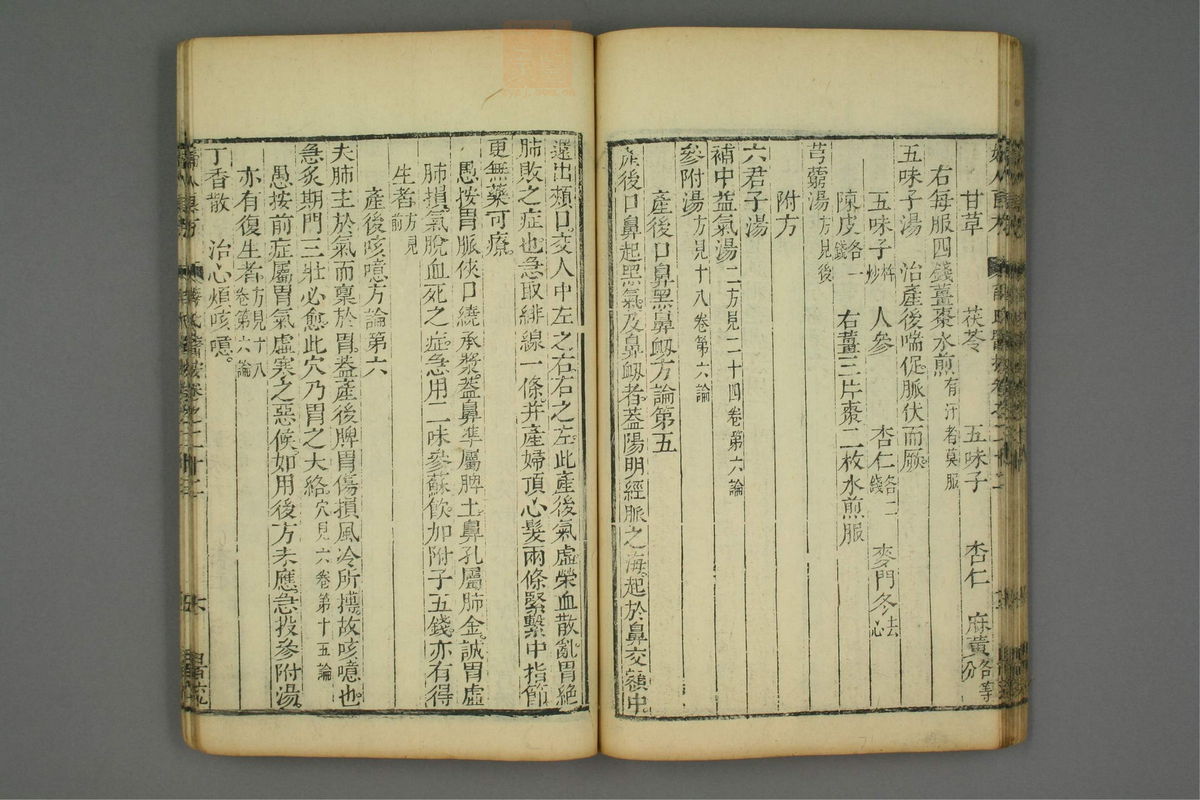 甘草 茯苓 五味子 杏仁 麻黃各等分
右每服四錢薑棗水煎有汗者莫服
五味子湯 治產後喘促脈伏而厥
五味子杵炒 人參 杏仁各二錢 麥門冬去心
陳皮各一錢 右薑三片棗二枚水煎服
芎藭湯方見後
附方
六君子湯
補中益氣湯二方見二十四卷第六論
參附湯方見十八卷第六論
產後口鼻黑鼻衂方論第五
產後口鼻起黑氣及鼻衂者蓋陽明經脈之海起於鼻交頞中
還出頰口交人中左之右右之左此產後氣虛榮血散亂胃絕
肺敗之症也急取緋線一條并產婦頂心髮兩條緊繫中指節
更無藥可療
愚按胃脈俠口繞承漿蓋鼻準屬脾土鼻孔屬肺金誠胃虛
肺損氣脫血死之症急用二味參蘇飲加附子五錢亦有得
生者方見前
產後咳噫方論第六
夫肺主於氣而稟於胃蓋產後脾胃傷損風冷所摶故咳噫也
急灸期門三壯必愈此穴乃胃之大絡穴見六卷第十五論
愚按前症屬胃氣虛寒之惡候如用後方未應急投參附湯
亦有復生者方見十八卷第六論
丁香散 治心煩咳噫